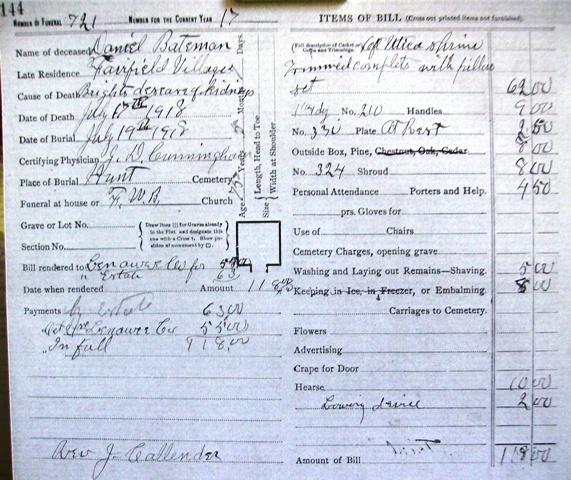 144
NUMBER OF FUNERAL 721 NUMBER FOR THE CURRENT YEAR 17
Name of deceased Daniel Bateman
Late Residence Fairfield Village
Cause of Death Brights disease of kidneys
Date of Death July 17th 1918
Date of Burial July 19th 1918
Certifying Physician J. D. Cunningham
Place of Burial Hunt Cemetery
Funeral at house or F. W. B. Church
Age Years Months Days
Size Length, Head to Toe
Width at Shoulder
Grave or Lot No.
Section No.
Draw lines for Graves already in the Plot and designate this one with a Cross †. Show position of monument by
Bill rendered to Lenawee Co for 55 00
" Estate 63
Date when rendered Amount 118 00
Payments by Estate 63 00
Lenawee Co 55 00
In full 118,00
Rev J- Callender
ITEMS OF BILL (Cross out printed items not furnished)
(Full description of Casket or Coffin and Trimmings. Utica shrine
Trimmed complete with pillow
set 62 00
No. 210 Handles 9 00
No. 330 Plate At Rest 2 50
Outside Box, Pine, Chestnut, Oak, Cedar 8 00
No. 324 Shroud 8 00
Personal Attendance Porters and Help. 4 50
prs. Gloves for
Use of Chairs
Cemetery Charges, opening grave
Washing and Laying out Remains—Shaving. 5 00
Keeping in Ice, in Freezer, or Embalming. 00
Carriages to Cemetery.
Flowers
Advertising
Crape for Door
Hearse 10 00
Lowery device 2 00
Amount of Bill 118 00